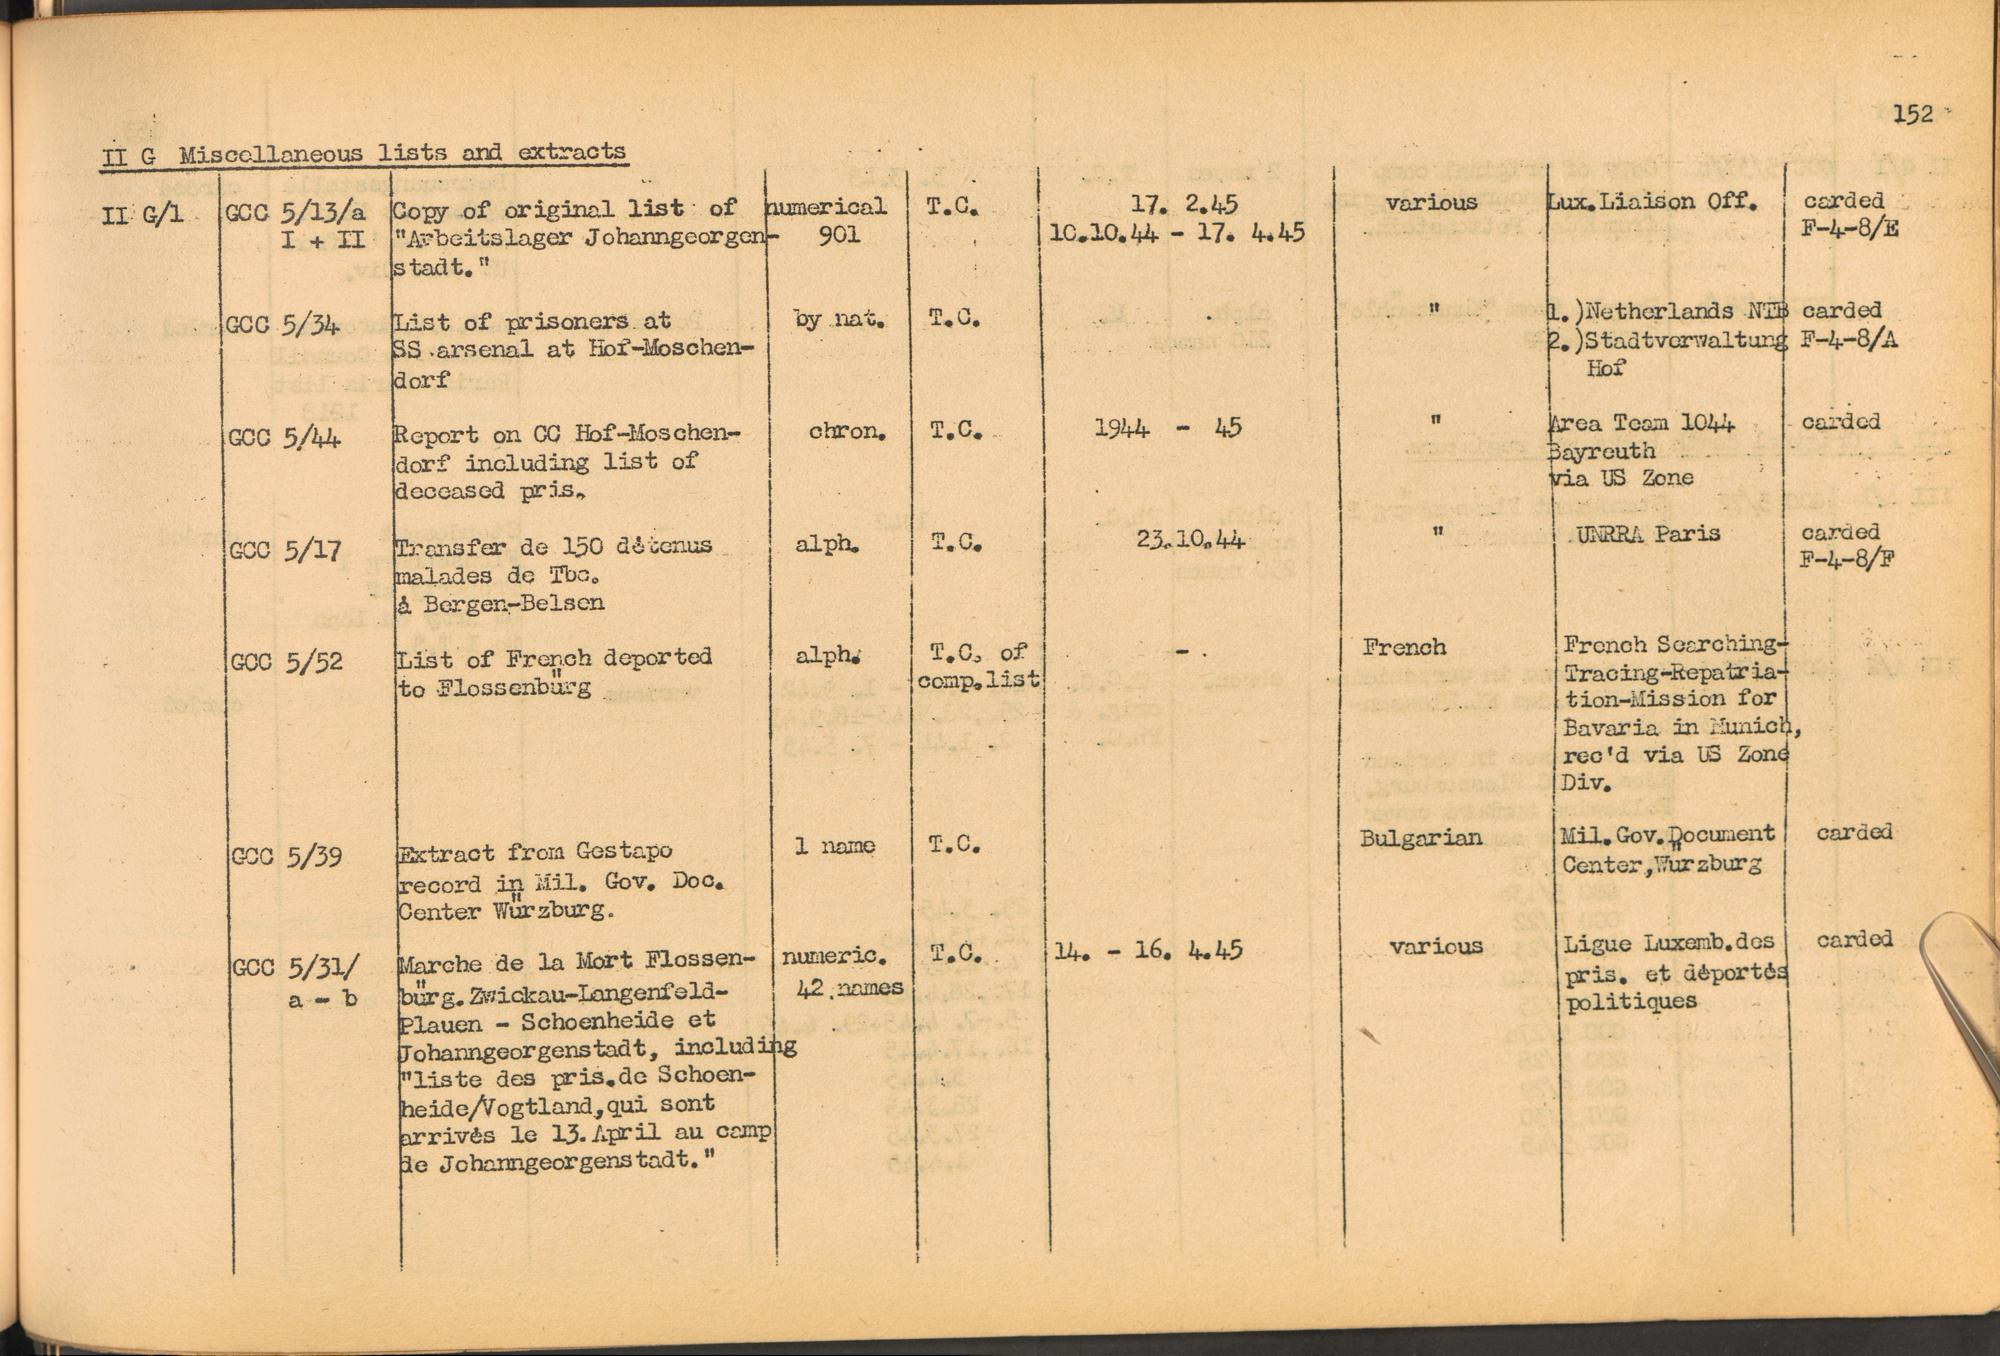 152
II G Miscellaneous lists and extracts
II G/1 GCC 5/13/a Copy of original list of numerical T.C. 17. 2.45 various Lux.Liaison Off. carded
I + II "Arbeitslager Johanngeorgen- 901 10.10.44 - 17. 4.45 F-4-8/E
stadt."
GCC 5/34 List of prisoners at by nat. T.C. " 1.)Netherlands NTB carded
SS arsenal at Hof-Moschen- 2.)Stadtverwaltung F-4-8/A
dorf Hof
GCC 5/44 Report on CC Hof-Moschen- chron. T.C. 1944 - 45 " Area Team 1044 carded
dorf including list of Bayreuth
deceased pris. via US Zone
GCC 5/17 Transfer de 150 détenus alph. T.C. 23.10.44 " UNRRA Paris carded
malades de Tbc. F-4-8/F
à Bergen-Belsen
GCC 5/52 List of French deported alph. T.C. of - French French Searching-
to Flossenbürg comp.list Tracing-Repatria-
tion-Mission for
Bavaria in Munich,
rec'd via US Zone
Div.
GCC 5/39 Extract from Gestapo 1 name T.C. Bulgarian Mil.Gov.Document carded
record in Mil. Gov. Doc. Center,Würzburg
Center Würzburg.
GCC 5/31/ Marche de la Mort Flossen- numeric. T.C. 14. - 16. 4.45 various Ligue Luxemb.des carded
a - b bürg.Zwickau-Langenfeld- 42 names pris. et déportés
Plauen - Schoenheide et politiques
Johanngeorgenstadt, including
"liste des pris.de Schoen-
heide/Vogtland,qui sont
arrivés le 13.April au camp
de Johanngeorgenstadt."